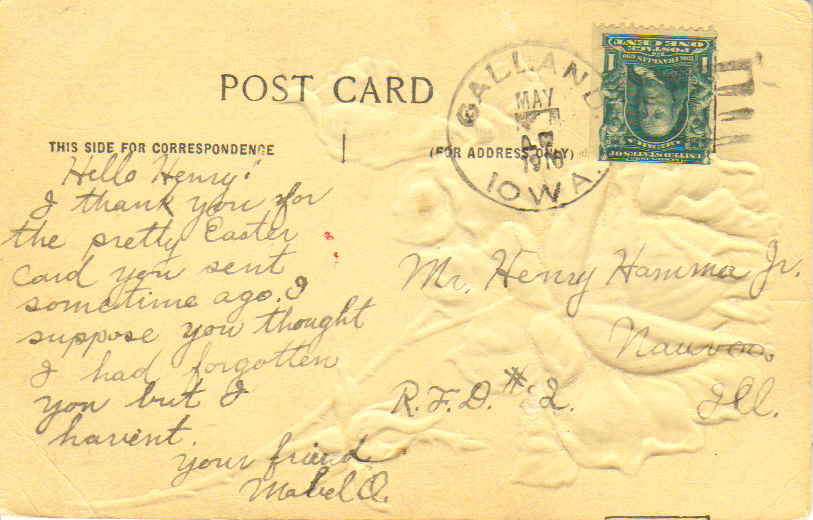 POST CARD
THIS SIDE FOR CORRESPONDENCE
(FOR ADDRESS ONLY)
GALLAND
MAY
1910
IOWA.
ONE CENT
POSTAGE
1 1
UNITED STATES OF
AMERICA
Hello Henry!
I thank you for
the pretty Easter
card you sent
sometime ago. I
suppose you thought
I had forgotten
you but I
havent.
your friend
Mabel O.
Mr. Henry Hamma Jr.
Nauvoo.
R.F.D. #2. Ill.